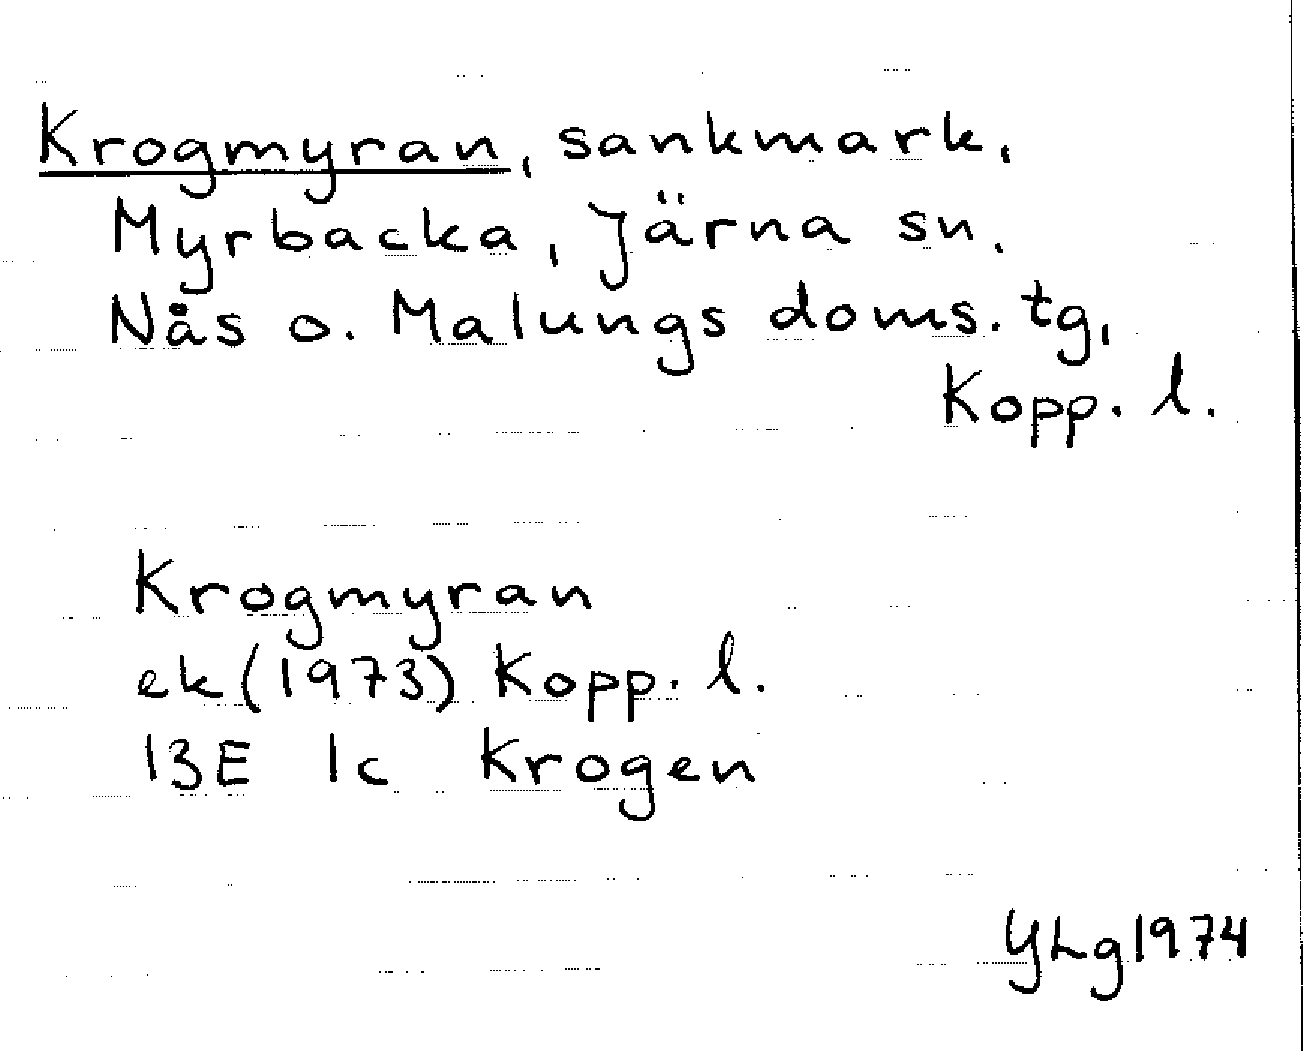 Krogmyran, sankmark,
Myrbacka, Järna sn.
Nås o. Malungs doms. tg,
Kopp. l.
Krogmyran
ek (1973) Kopp. l.
13E 1c Krogen
YLg 1974